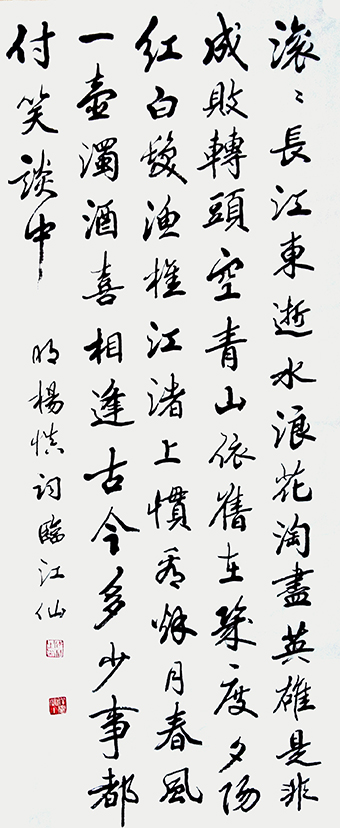 滚〻長江東逝水浪花淘盡英雄是非
成敗轉頭空青山依舊在幾度夕陽
紅白髮漁樵江渚上慣看秌月春風
一壺濁酒喜相逢古今多少事都
付笑談中
明楊慎詞臨江仙